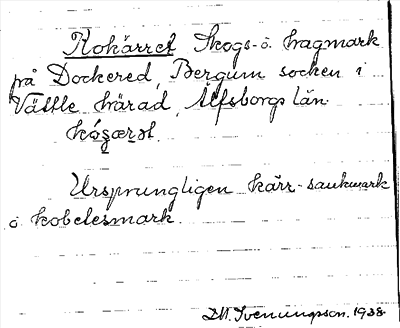 Kohärret Skogs- o. hagmark
på Dockered, Bergum socken i
Vättle härad, Älfsborgs län
Ursprungligen kärr-sankmark
o kobetesmark.
D.M. Svenungsson. 1938